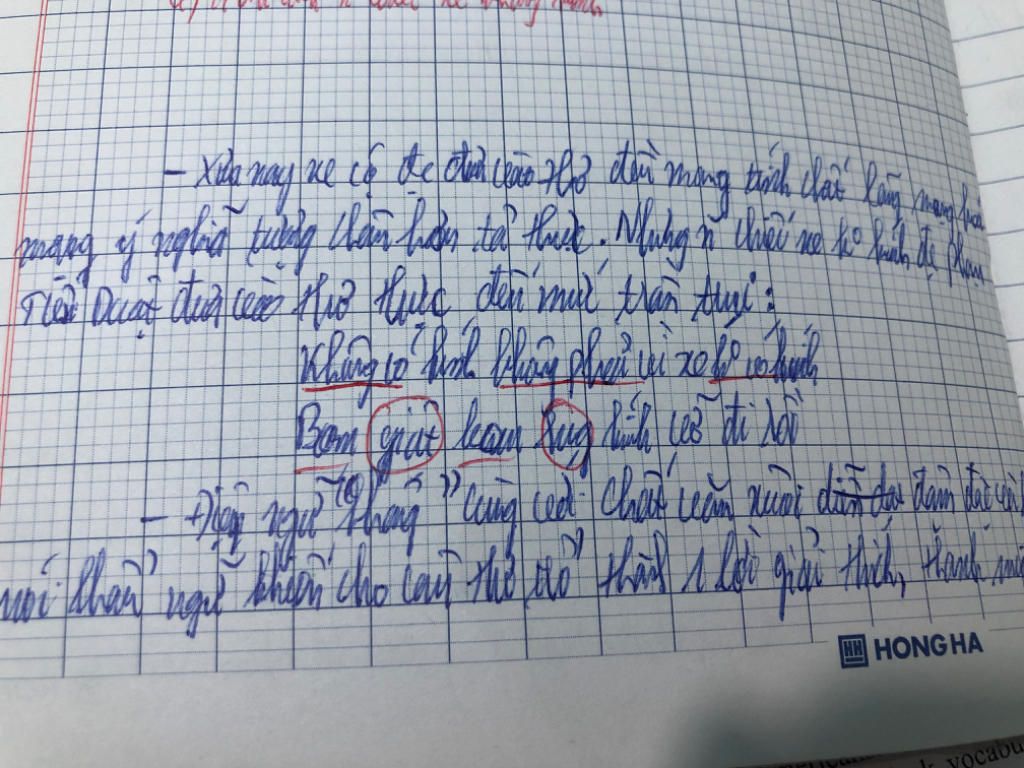 - Xưa nay xe cộ đc đưa vào thơ đều mang tính chất lãng mạng hoá
mang ý nghĩa tượng hơn tả thực. Nhưng n chiếc xe ko kính đc Phạm
Tiến Duật đưa vào thơ thực đến mức trần trụi:
Không có kính không phải vì xe ko có kính
Bom giật bom rung kính vỡ đi rồi
- Điệp ngữ "không" cùng với chất văn xuôi đậm đặc với
nói khẩu ngữ khiến cho câu thơ trở thành 1 lời giải thích, thanh
HH HONG HA
vocabu